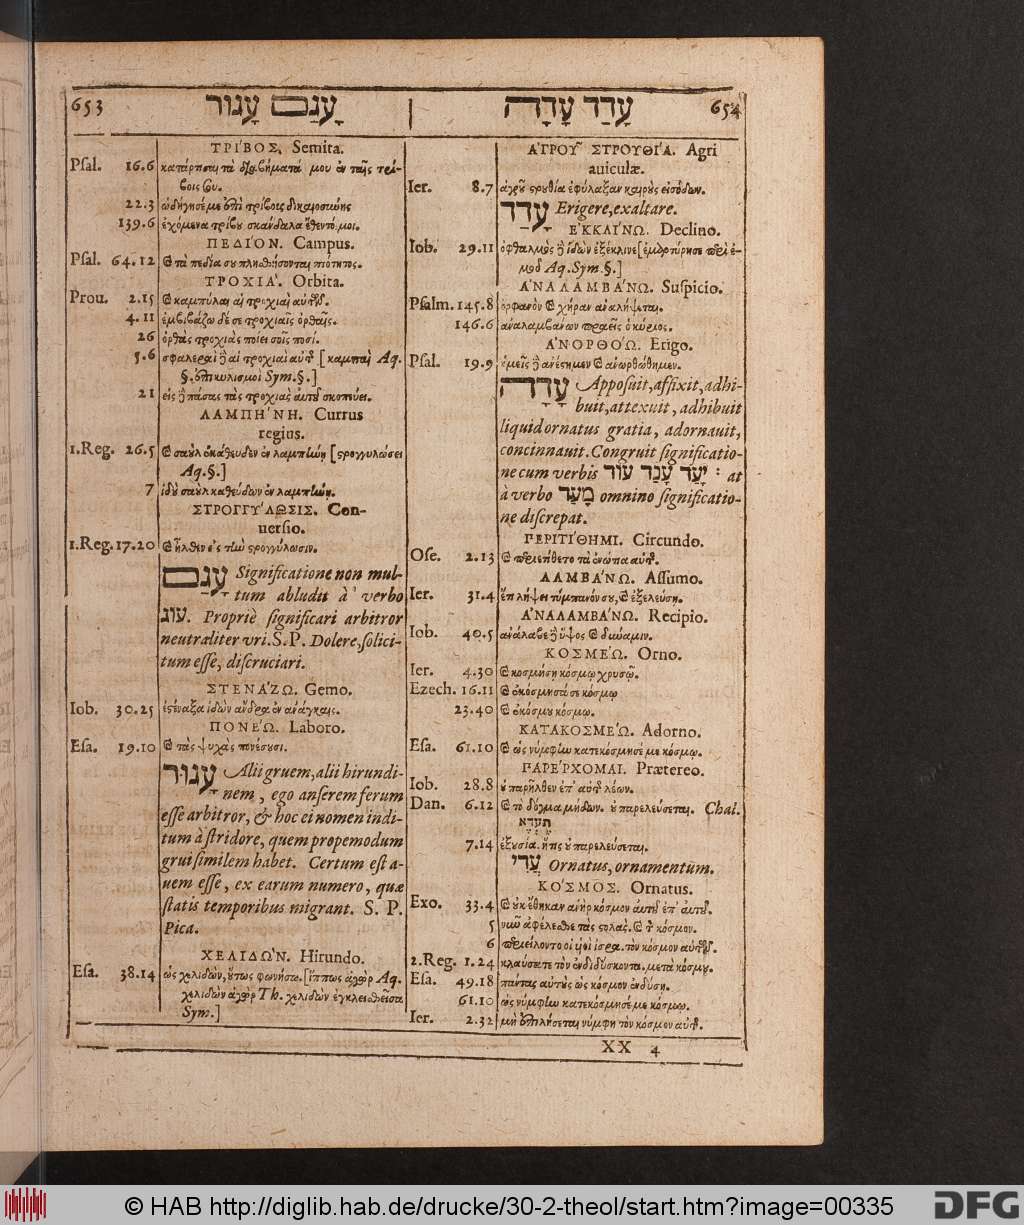 653 עָגַם עָגוּר
ΤΡΙ´ΒΟΣ. Semita.
Psal. 16.6 κατάρτισαι τὰ διαβήματά μου ἐν ταῖς τρί-
βοις σου.
22.3 ὡδήγησέ με ἐπὶ τρίβοις δικαιοσύνης
139.6 ἐχόμενα τρίβου σκάνδαλα ἔθεντό μοι.
ΠΕΔΙ´ΟΝ. Campus.
Psal. 64.12 καὶ τὰ πεδία σου πλησθήσονται πιότητος.
ΤΡΟΧΙΑ´. Orbita.
Prou. 2.15 καὶ καμπύλαι αἱ τροχιαὶ αὐτῶν.
4.11 ἐμβιβάζω δέ σε τροχιαῖς ὀρθαῖς.
26 ὀρθὰς τροχιὰς ποίει σοῖς ποσί.
5.6 σφαλεραὶ δὲ αἱ τροχιαὶ αὐτῆς [καμπαὶ Aq.
§. ἐπικυλισμοὶ Sym.§.]
21 εἰς δὲ πάσας τὰς τροχιὰς αὐτοῦ σκοπεύει.
ΛΑΜΠΗ´ΝΗ. Currus
regius.
1.Reg. 26.5 καὶ σαοὺλ ἐκάθευδεν ἐν λαμπήνῃ [στρογγυλώσει
Aq.§.]
7 ἰδοὺ σαοὺλ καθεύδων ἐν λαμπήνῃ.
ΣΤΡΟΓΓΥ´ΛΩΣΙΣ. Con-
uersio.
1.Reg. 17.20 καὶ ἦλθεν εἰς τὴν στρογγύλωσιν.
עָגַם Significatione non mul-
tum abludit à verbo
עוג. Propriè significari arbitror
neutraliter vri. S.P. Dolere, solici-
tum esse, discruciari.
ΣΤΕΝΑ´ΖΩ. Gemo.
Iob. 30.25 ἐστέναξα ἰδὼν ἄνδρα ἐν ἀνάγκαις.
ΠΟΝΕ´Ω. Laboro.
Esa. 19.10 καὶ τὰς ψυχὰς πονέσουσι.
עָגוּר Alii gruem, alii hirundi-
nem, ego anserem ferum
esse arbitror, & hoc ei nomen indi-
tum à stridore, quem propemodum
grui similem habet. Certum est a-
uem esse, ex earum numero, quæ
statis temporibus migrant. S. P.
Pica.
ΧΕΛΙΔΩ`Ν. Hirundo.
Esa. 38.14 ὡς χελιδὼν, οὕτως φωνήσω. [ἵππως ἀγὸρ Aq.
χελιδὼν ἀγὸρ Th. χελιδὼν ἐγκλεισθεῖσα
Sym.]
עָדַד עָדָה 654
ἈΓΡΟΥ͂ ΣΤΡΟΥΘΙ´Α. Agri
auiculæ.
Ier. 8.7 ἀγροῦ στρουθία ἐφύλαξαν καιροὺς εἰσόδων.
עָדַד Erigere, exaltare.
ἘΚΚΛΙ´ΝΩ. Declino.
Iob. 29.11 ὀφθαλμὸς δὲ ἰδών με ἐξέκλινε [ἐμαρτύρησε περὶ ἐ-
μοῦ Aq.Sym.§.]
ἈΝΑΛΑΜΒΑ´ΝΩ. Suspicio.
Psalm. 145.8 ὀρφανὸν καὶ χήραν ἀναλήψεται.
146.6 ἀναλαμβάνων πραεῖς ὁ κύριος.
ἈΝΟΡΘΟ´Ω. Erigo.
Psal. 19.9 ἡμεῖς δὲ ἀνέστημεν καὶ ἀνωρθώθημεν.
עָדָה Apposuit, affixit, adhi-
buit, attexuit, adhibuit
liquid ornatus gratia, adornauit,
concinnauit. Congruit significatio-
ne cum verbis יָעַד עָנַד עוֹר : at
à verbo מָעַד omnino significatio-
ne discrepat.
ΠΕΡΙΤΙ´ΘΗΜΙ. Circundo.
Ose. 2.13 καὶ περιετίθετο τὰ ἐνώτια αὐτῆς.
ΛΑΜΒΑ´ΝΩ. Assumo.
Ier. 31.4 ἔτι λήψει τύμπανόν σου, καὶ ἐξελεύσῃ.
ἈΝΑΛΑΜΒΑ´ΝΩ. Recipio.
Iob. 40.5 ἀνάλαβε δὲ ὕψος καὶ δύναμιν.
ΚΟΣΜΕ´Ω. Orno.
Ier. 4.30 καὶ κοσμήσῃ κόσμῳ χρυσῷ.
Ezech. 16.11 καὶ ἐκόσμησά σε κόσμῳ
23.40 καὶ ἐκόσμου κόσμῳ.
ΚΑΤΑΚΟΣΜΕ´Ω. Adorno.
Esa. 61.10 καὶ ὡς νύμφην κατεκόσμησέ με κόσμῳ.
ΠΑΡΕ´ΡΧΟΜΑΙ. Prætereo.
Iob. 28.8 οὐ παρῆλθεν ἐπ' αὐτῆς λέων.
Dan. 6.12 καὶ τὸ δόγμα μήδων. οὐ παρελεύσεται. Chal.
תֶעְדֵּא
7.14 ἐξουσία. ἥτις οὐ παρελεύσεται.
עֲדִי Ornatus, ornamentum.
ΚΟ´ΣΜΟΣ. Ornatus.
Exo. 33.4 καὶ οὐκ ἔθηκαν ἀνὴρ κόσμον αὐτοῦ ἐπ' αὐτοῦ.
5 νῦν ἀφέλεσθε τὰς στολὰς. καὶ τὸν κόσμον.
6 περιείλοντο οἱ υἱοὶ ἰσρα. τὸν κόσμον αὐτῶν.
2.Reg. 1.24 κλαύσατε τὸν ἐνδιδύσκοντα. μετὰ κόσμου.
Esa. 49.18 πάντας αὐτοὺς ὡς κόσμον ἐνδύσῃ.
61.10 ὡς νύμφην κατεκόσμησέ με κόσμῳ.
Ier. 2.32 μὴ ἐπιλήσεται νύμφη τὸν κόσμον αὐτῆς.
XX 4
© HAB http://diglib.hab.de/drucke/30-2-theol/start.htm?image=00335
DFG